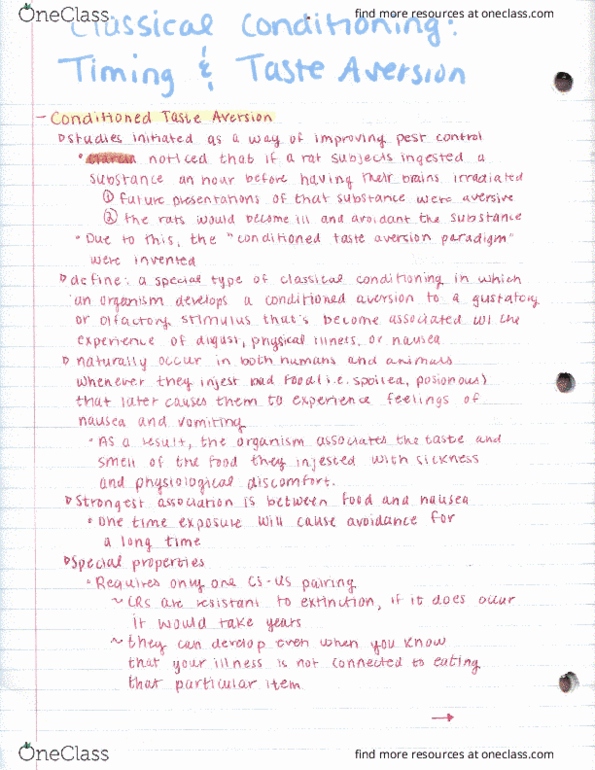 OneClass
find more resources at oneclass.com
Classical Conditioning:
Timing & Taste Aversion
- Conditioned Taste Aversion
studies initiated as a way of improving pest control
• Garcia noticed that if a rat subjects ingested a
substance an hour before having their brains irradiated
① future presentations of that substance were aversive
② the rats would become ill and avoidant the substance
• Due to this, the "conditioned taste aversion paradigm"
were invented
define: a special type of classical conditioning in which
an organism develops a conditioned aversion to a gustatory
or olfactory stimulus that's become associated w/ the
experience of digust, physical illness, or nausea
naturally occur in both humans and animals
whenever they injest bad food (i.e. spoiled, posionous)
that later causes them to experience feelings of
nausea and vomiting
• As a result, the organism associates the taste and
smell of the food they injested with sickness
and physiological discomfort.
Strongest association is between food and nausea
• One time exposure will cause avoidance for
a long time
Special properties
• Requires only one CS-US pairing
~ CRs are resistant to extinction, if it does occur
it would take years
~ they can develop even when you know
that your illness is not connected to eating
that particular item
→
OneClass
find more resources at oneclass.com